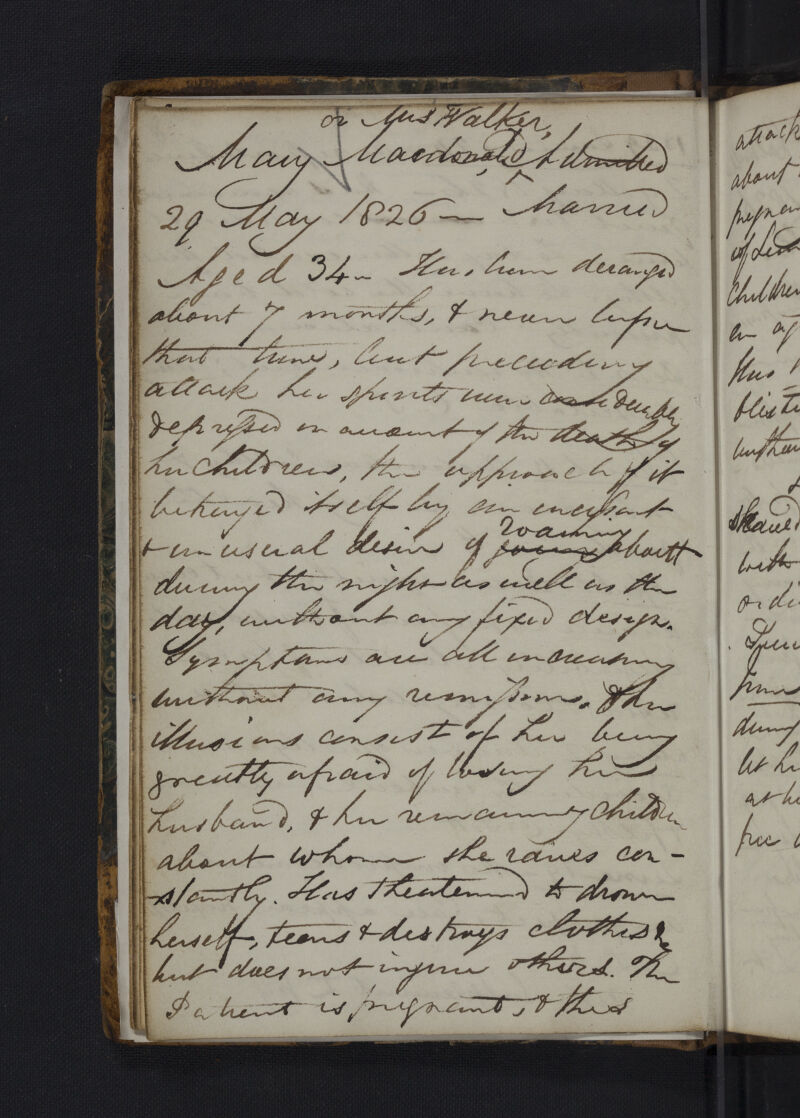 or Mrs Walker,
Mary Macdonald, Admitted
29 May 1826 — Married
Aged 34 — Has been deranged
about 7 months, & never before
that time, but preceding
attack her spirits were considerably
depressed on account of the death of
her children, the approach of it
betrayed itself by an incessant
& unusual desire of roaming about
during the night as well as the
day, without any fixed design.
Symptoms are all increasing
without any remissions. & her
illusions consist of her being
greatly afraid of losing her
husband, & her remaining children
about whom she raves con-
stantly. Has threatened to drown
herself, tears & destroys clothes &c
but does not injure others. The
Patient is pregnant, & this
attack
about
pregnan
of
children
an
this
bliste

shaved
with
ordi

from
during
let h
at h
free